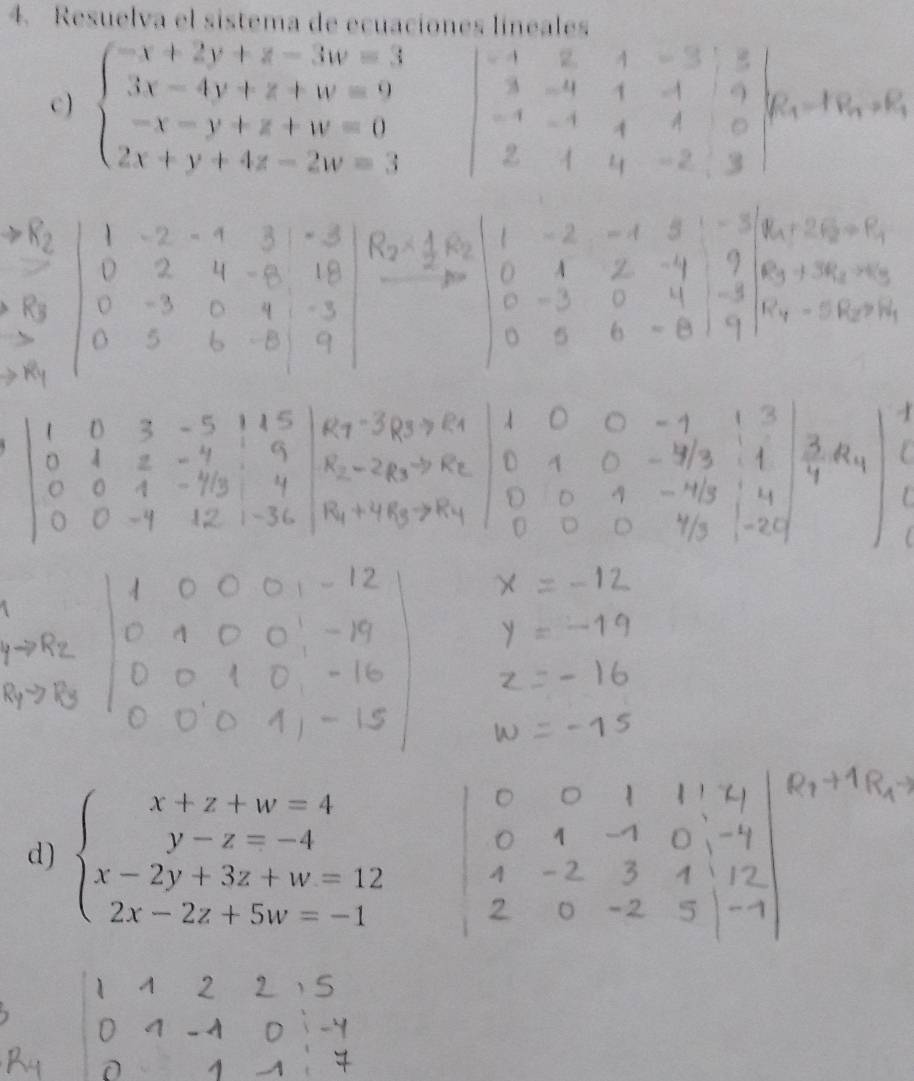 4. Resuelva el sistema de ecuaciones lineales
c)
-x + 2y + z - 3w = 3
3x - 4y + z + w = 9
-x - y + z + w = 0
2x + y + 4z - 2w = 3
-1 2 1 -3 3
3 -4 1 1 9
-1 -1 1 1 0
2 1 4 -2 3
→R2
1 -2 -1 3 -3
0 2 4 -8 18
→R3
0 -3 0 4 -3
0 5 6 -8 9
→R4
R2 × 1/2 R2
1 -2 -1 3 -3
0 1 2 -4 9
0 -3 0 4 -3
0 5 6 -8 9
R1 + 2R2 → R1
R3 + 3R2 → R3
R4 - 5R2 → R4
1 0 3 -5 15
0 1 2 -4 9
0 0 1 -4/3 4
0 0 -4 12 -36
R1 - 3R3 → R1
R2 - 2R3 → R2
R4 + 4R3 → R4
1 0 0 -1 3
0 1 0 -4/3 1
0 0 1 -4/3 4
0 0 0 4/3 -20
3/4 R4
1 0 0 0 -12
4→R2
0 1 0 0 -19
R4→R3
0 0 1 0 -16
0 0 0 1 -15
x = -12
y = -19
z = -16
w = -15
d)
x + z + w = 4
y - z = -4
x - 2y + 3z + w = 12
2x - 2z + 5w = -1
0 0 1 1 4
0 1 -1 0 -4
1 -2 3 1 12
2 0 -2 5 -1
R1 + 1R1 →
1 1 2 2 5
0 1 -1 0 -4
R4
0 1 -1 7